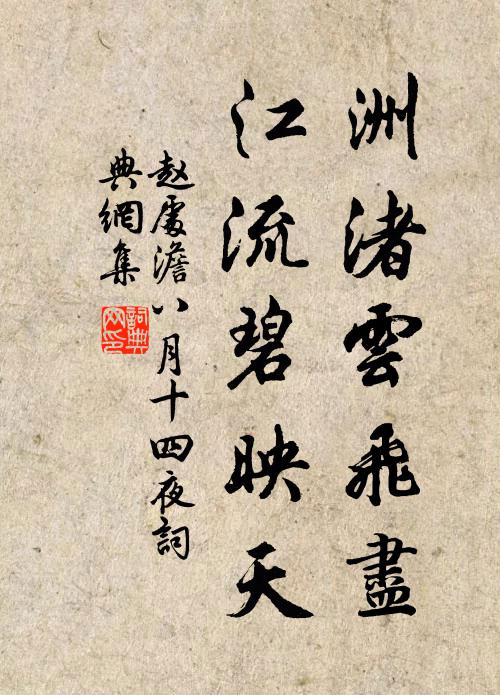 洲渚雲飛盡
江流碧映天
赵處澹八月十四夜詞
典網集
詞典網印